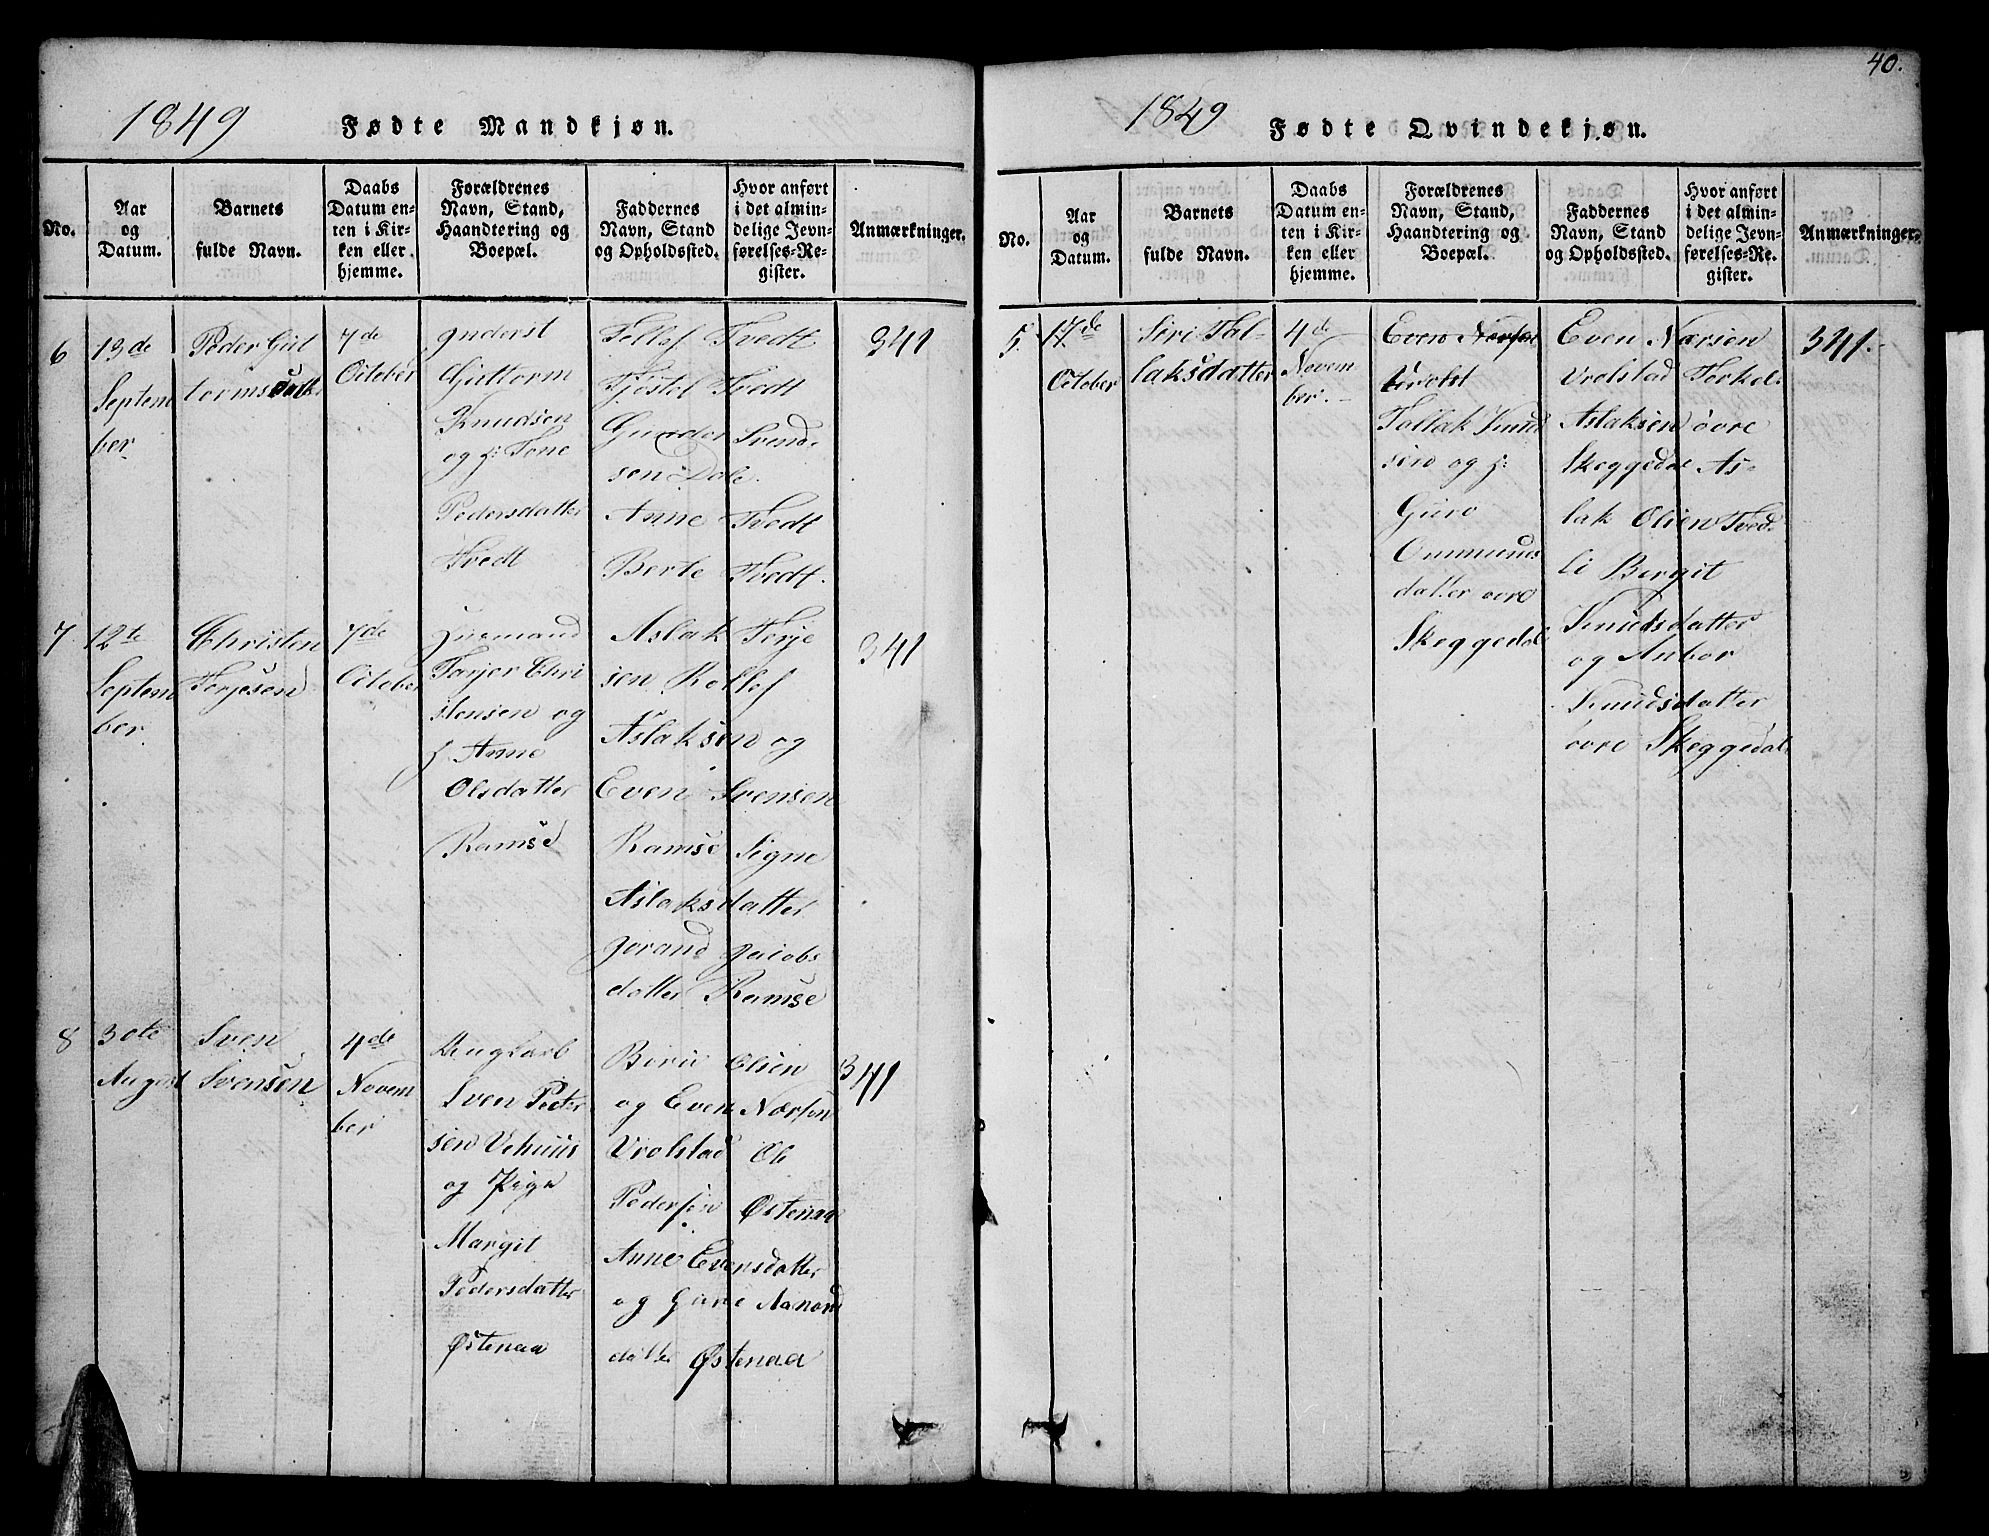 1849
Fødte Mandkjøn.
No.
Aar
og
Datum.
Barnets
fulde Navn.
Daabs
Datum en-
ten i Kir-
ken eller
hjemme.
Forældrenes
Navn, Stand,
Haandtering og
Boepæl.
Faddernes
Navn, Stand
og Opholdssted.
Hvor anført
i det almin-
delige Jevn-
førelses-Re-
gister.
Anmærkninger.
6
13de
Septem
ber
Peder Gut
tormsen
7de
October
Guttorm
Knudsen
og h: Tone
Pedersdatter
Tvedt
Tellef Tvedt
Tjøstel Tvedt
Gunder Svend-
sen Dale.
Anne Tvedt
Berte Tvedt.
341
7.
12te
Septem
ber.
Christen
Terjesen
7de
October
Huusmand
Tarjer Chri
stensen og
h. Anne
Olsdatter
Ramse
Aslak Terje
sen Rollef
Aslaksen og
Even Svensen
Ramse Signe
Aslaksdatter
Jorand Jacobs
datter Ramse
341
8
30te
August
Sven
Svensen
4de
Novem
ber
Ungkarl
Sven Peder
sen Vehuus
og Pige
Margit
Pedersdatter
Østenaa
Olsen
og Even Nærsen
Vrolstad Ole
Pedersen Østenaa
Anne Evensdatter
og Gure Aanond
datter Østenaa
341
40.
1849
Fødte Qvindekjøn.
No.
Aar
og
Datum.
Barnets
fulde Navn.
Daabs
Datum en-
ten i Kir-
ken eller
hjemme.
Forældrenes
Navn, Stand,
Haandtering og
Boepæl.
Faddernes
Navn, Stand
og Opholdssted.
Hvor anført
i det almin-
delige Jevn-
førelses-Re-
gister.
Anmærkninger.
5.
17.de
October
Siri Tal-
laksdatter
4de
Novem
ber.
Even Nærsen
Vrolst
Tallak Knud
sen og h:
Guro
Ommunds
datter øvre
Skeggedal
Even Nærsen
Vrolstad Terkel
Aslaksen øvre
Skeggedal As-
lak Olsen Tved-
li Bergit
Knudsdatter
og Anbor
Knudsdatter
øvre Skeggedal
341.